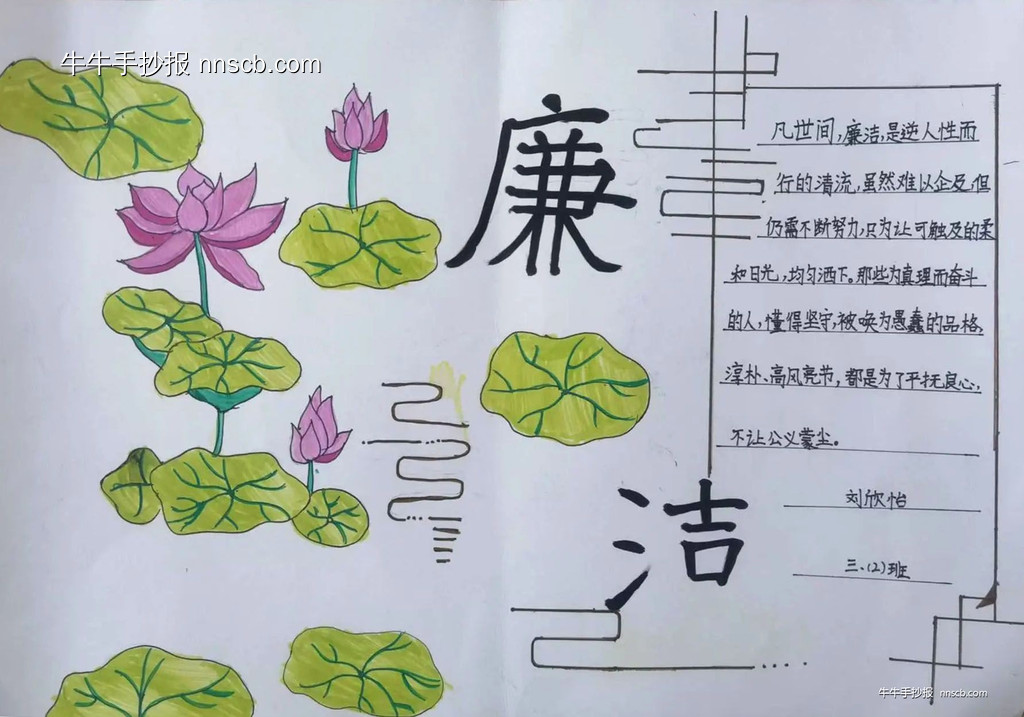 牛牛手抄报 nnscb.com
廉
洁
凡世间，廉洁，是逆人性而
行的清流，虽然难以企及，但
仍需不断努力，只为让可触及的柔
和日光，均匀洒下。那些为真理而奋斗
的人，懂得坚守，被唤为愚蠢的品格，
淳朴、高风亮节，都是为了平抚良心，
不让公义蒙尘。
刘欣怡
三、(2)班
牛牛手抄报 nnscb.com